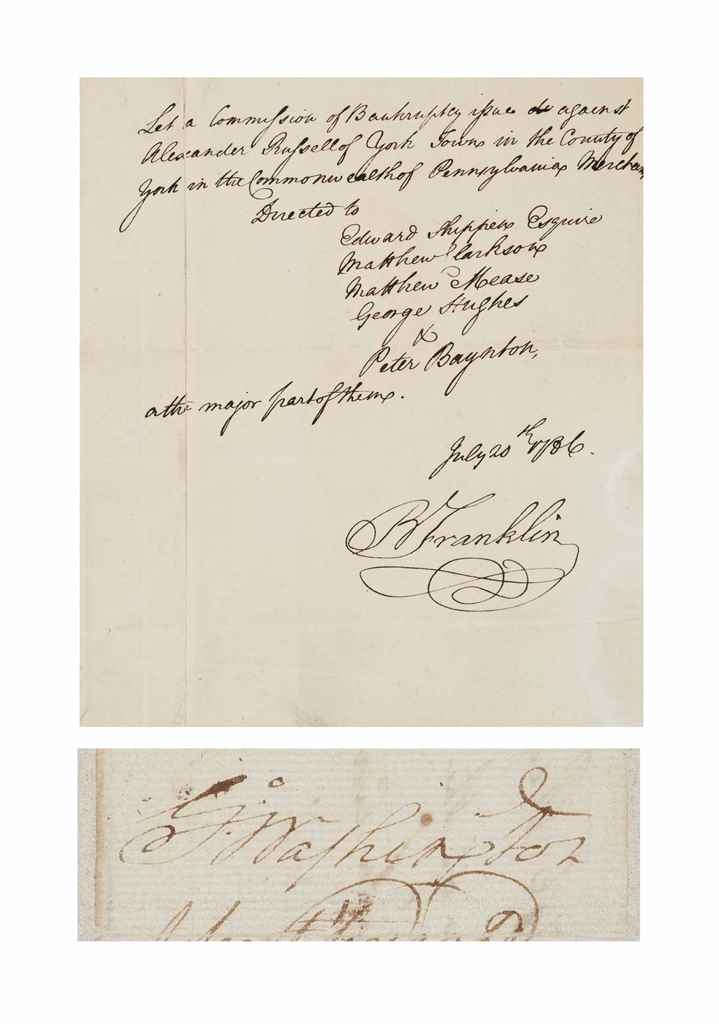 Let a Commission of Bankruptcy issue against
Alexander Russell of York Town in the County of
York in the Commonwealth of Pennsylvania Merchan
Directed to
Edward Shippen Esquire
Matthew Clarkson
Matthew Mease
George Hughes
&
Peter Baynton,
or the major part of them.
July 20th 1786.
B Franklin
Go: Washington